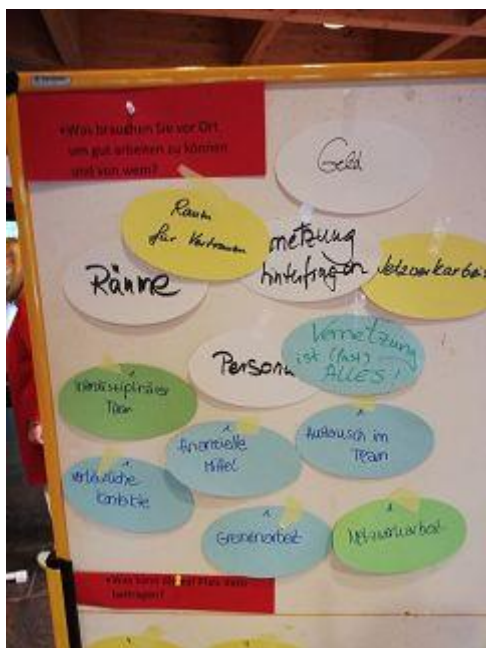 •Was brauchen Sie vor Ort,
um gut arbeiten zu können
und von wem?
Geld
Raum
für Vertrauen
netzung
hinterfragen
Netzwerkarbeit
Räume
Vernetzung
ist (fast)
ALLES!
Person
Interdisziplinäres
Team
finanzielle
Mittel
Austausch im
Team
verlässliche
Kontakte
Gremienarbeit
Netzwerkarbeit
•Was kann
beitragen?